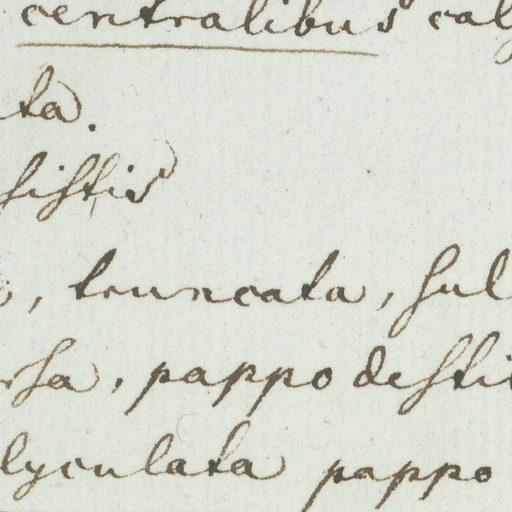 centralibus caly
ta.
sistis
, truncata, sul
rsa, pappo desti
lyculata pappo